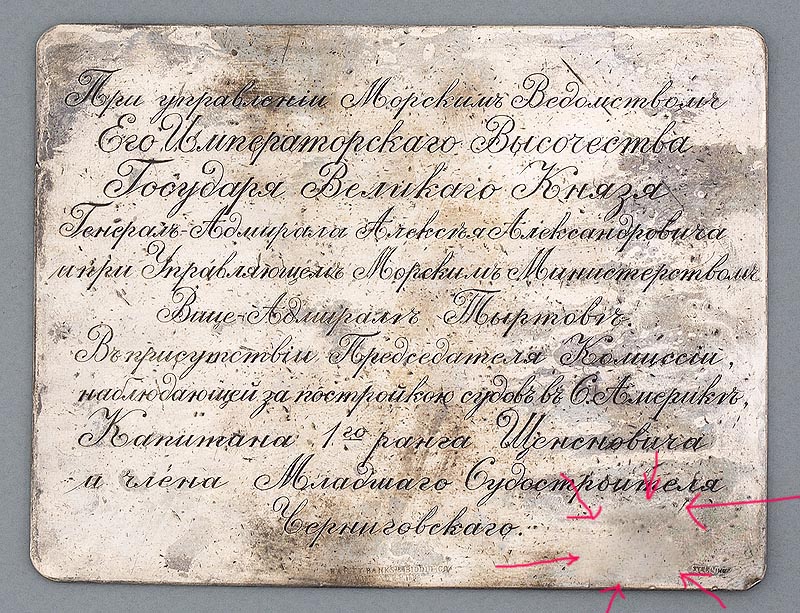 При управленіи Морскимъ Ведомствомъ
Его Императорскаго Высочества
Государя Великаго Князя
Генералъ-Адмирала Алексѣя Александровича
и при Управляющемъ Морскимъ Министерствомъ
Вице-Адмиралѣ Тыртовѣ
Въ присутствіи Председателя Комиссіи,
наблюдающей за постройкою судовъ въ С. Америкѣ,
Капитана 1го ранга Щенсновича
и члена Младшаго Судостроителя
Черниговскаго.
BANKS & BIDDLE CO
STERLING